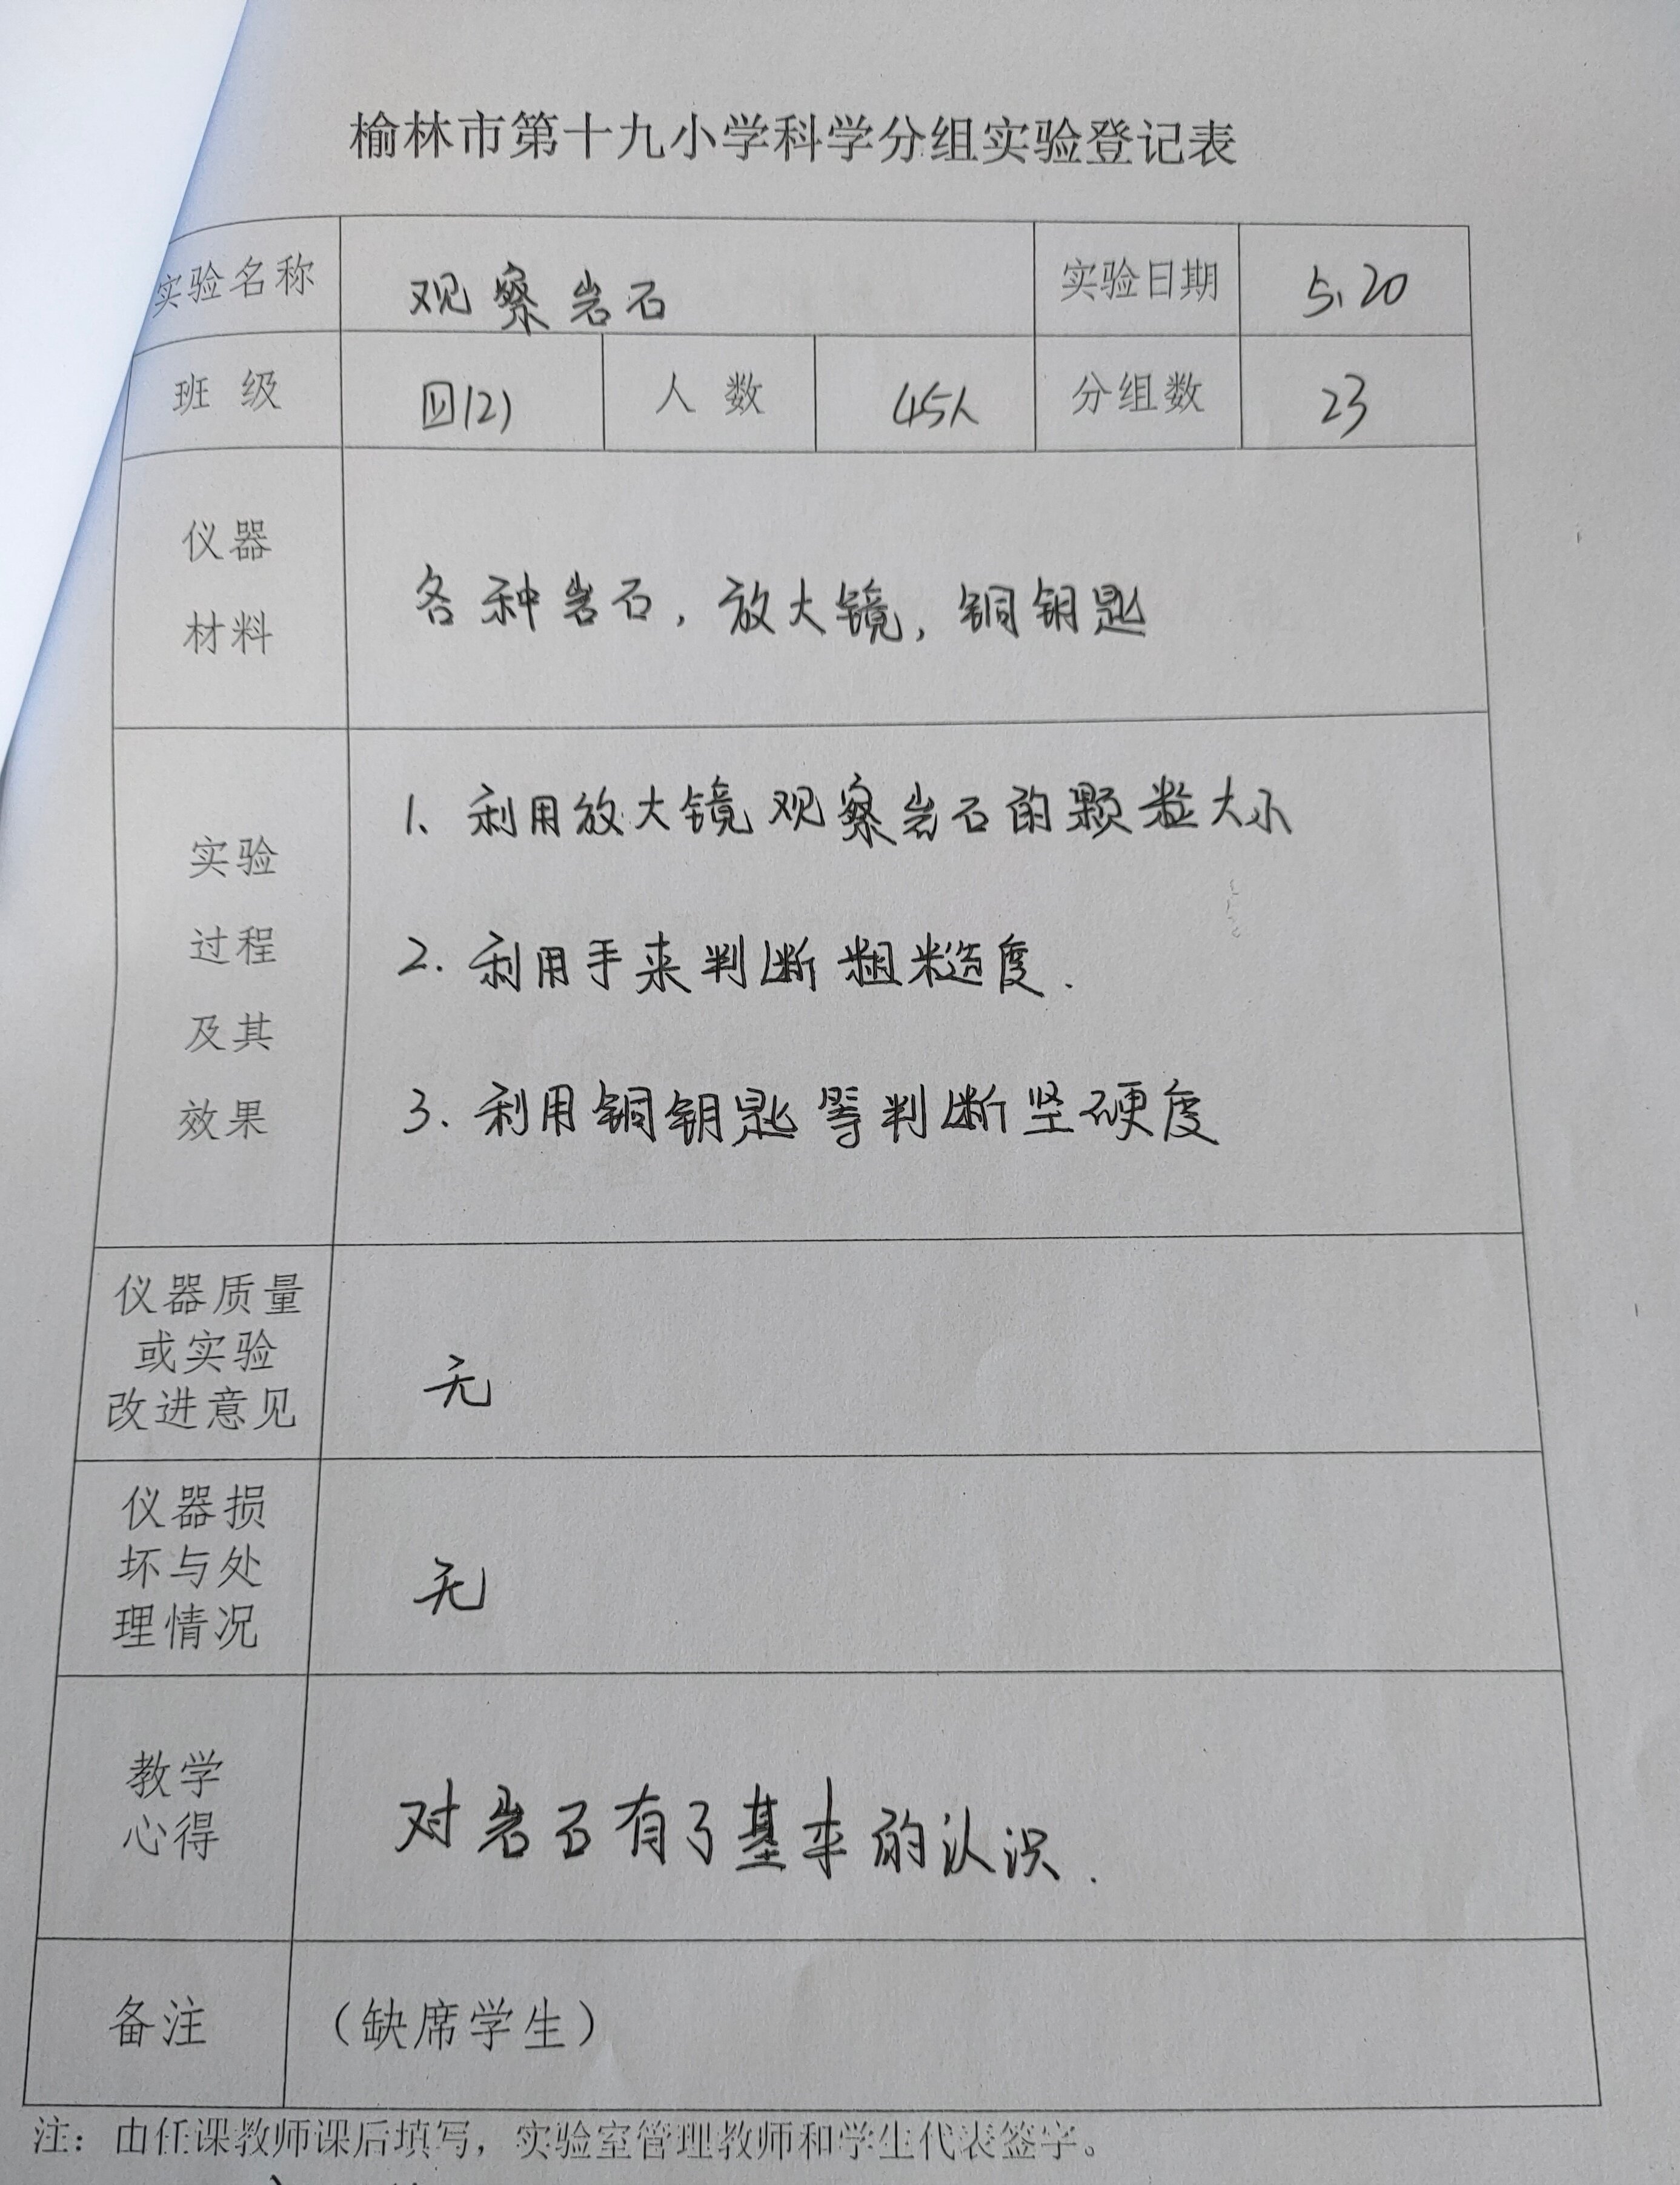 榆林市第十九小学科学分组实验登记表
实验名称 观察岩石 实验日期 5.20
班级 四(2) 人数 45人 分组数 23
仪器
材料
各种岩石，放大镜，铜钥匙
实验
过程
及其
效果
1、利用放大镜观察岩石的颗粒大小
2.利用手来判断粗糙度.
3.利用铜钥匙等判断坚硬度
仪器质量
或实验
改进意见
无
仪器损
坏与处
理情况
无
教学
心得
对岩石有了基本的认识.
备注 （缺席学生）
注：由任课教师课后填写，实验室管理教师和学生代表签字。